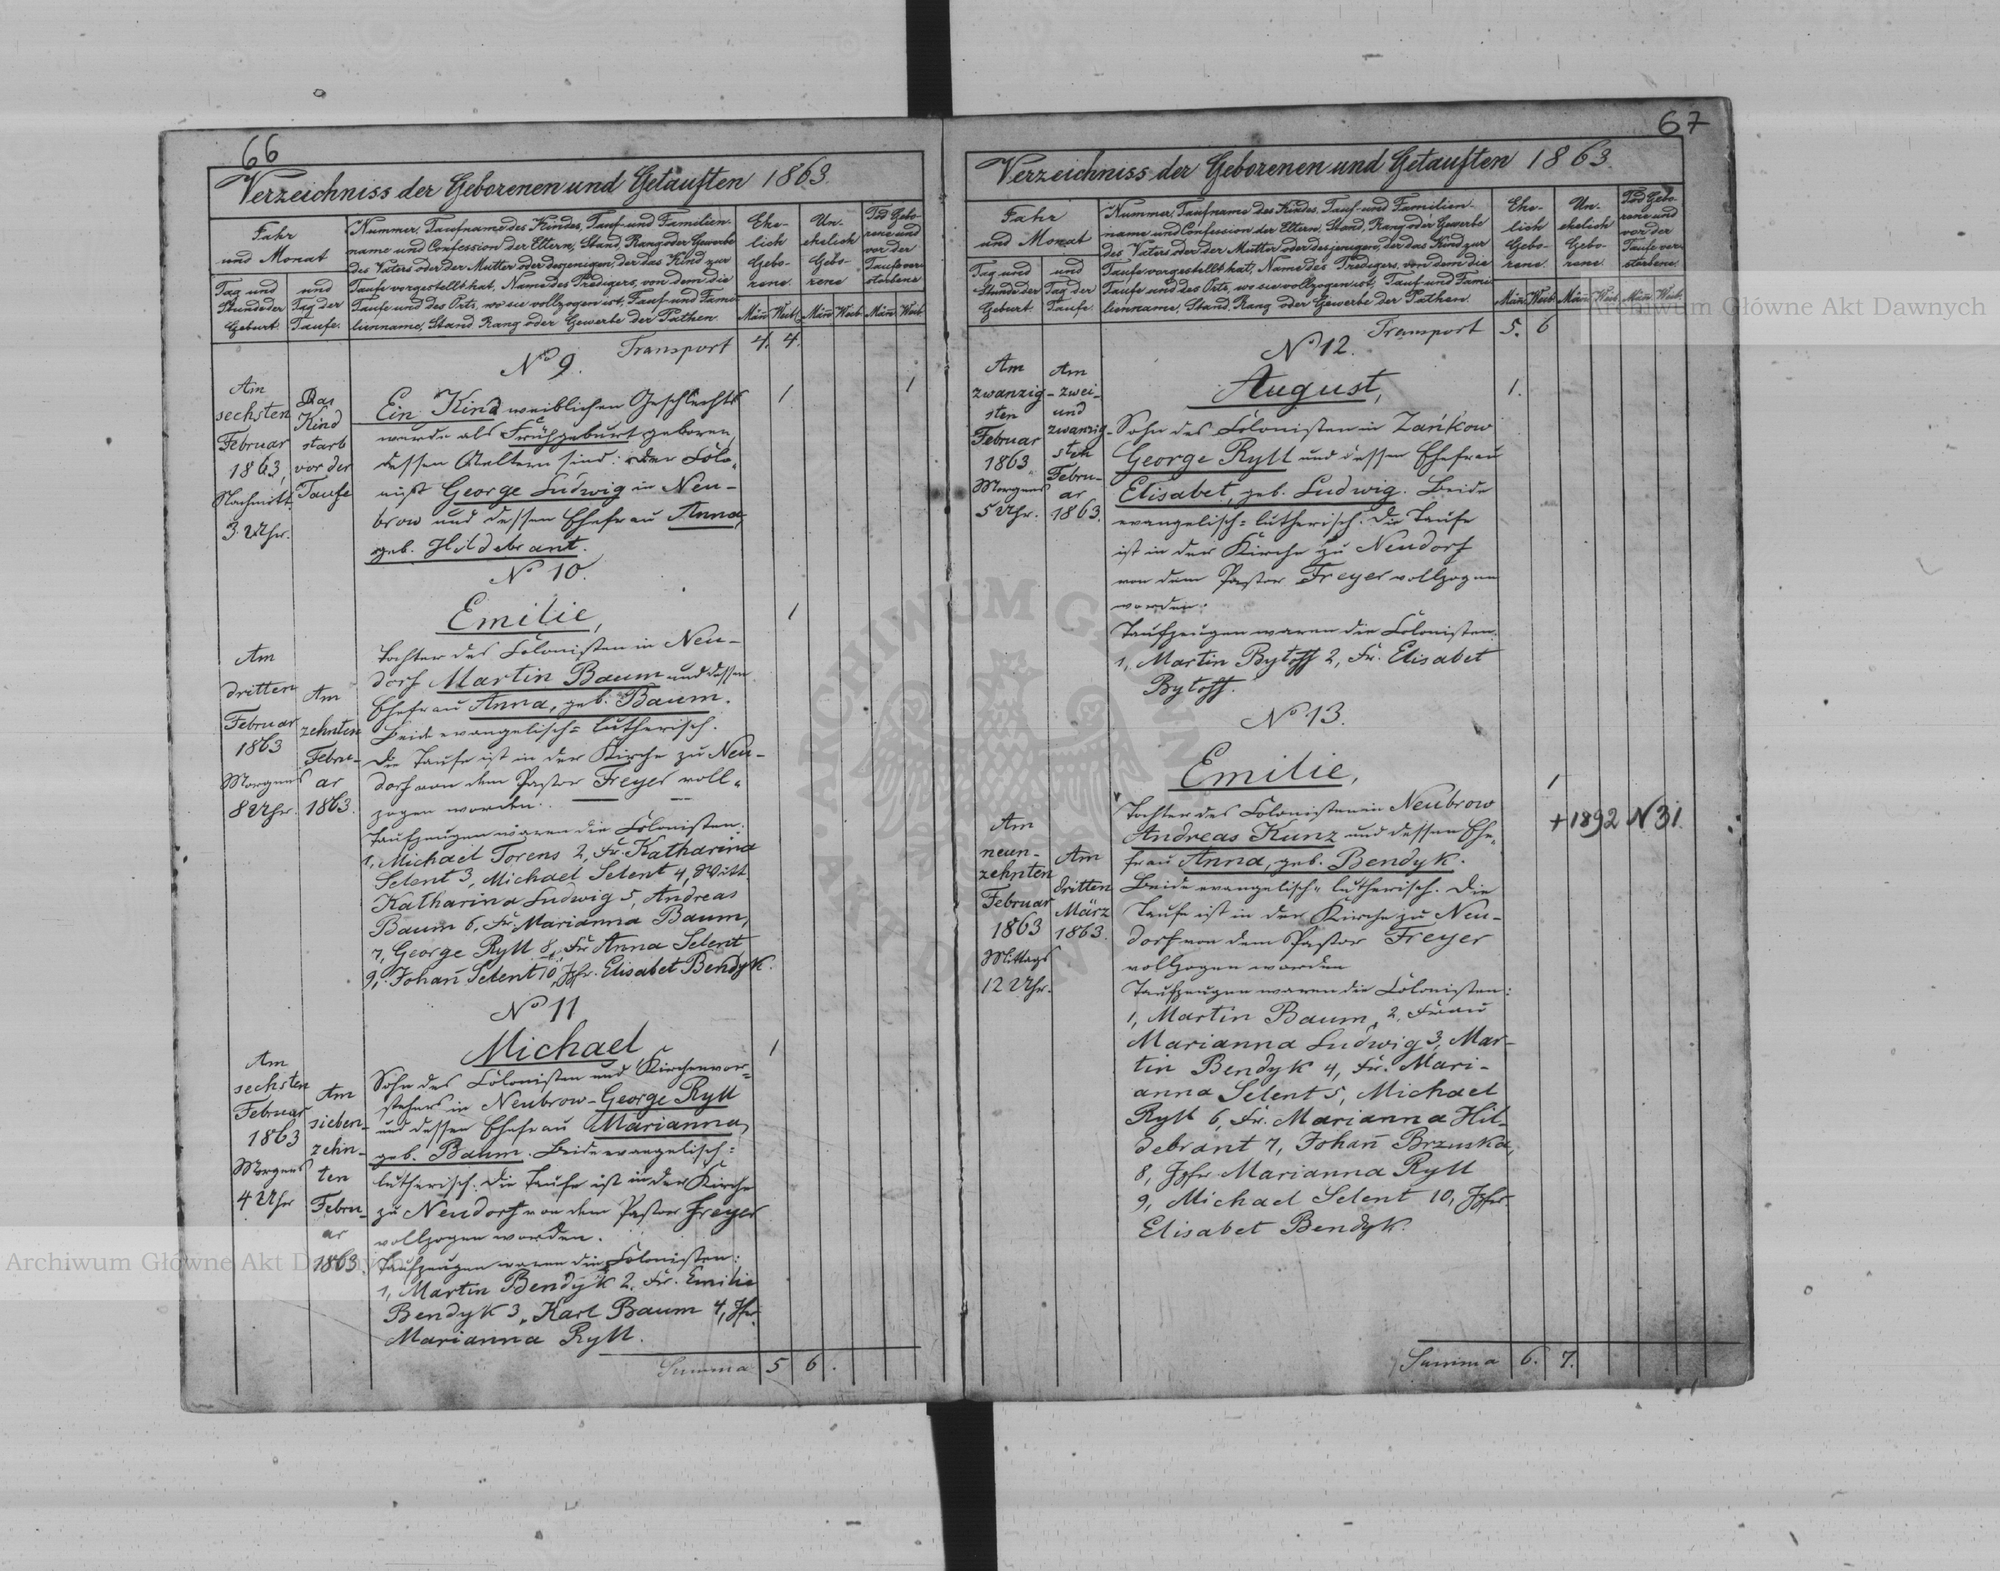 66
Verzeichniss der Geborenen und Getauften 1863.
Jahr
und Monat
Tag und
Stunde der
Geburt.
und
Tag der
Taufe.
Nummer, Taufname des Kindes, Tauf- und Familien-
name und Confession der Eltern, Stand, Rang oder Gewerbe
des Vaters oder der Mutter oder desjenigen, der das Kind zur
Taufe vorgestellt hat, Name des Predigers, von dem die
Taufe und des Orts, wo sie vollzogen ist, Tauf- und Fami-
lienname, Stand, Rang oder Gewerbe der Pathen.
Ehe-
lich
Gebo-
rene.
Un-
ehelich
Gebo-
rene
Tod Gebo-
rene und
vor der
Taufe ver-
storbene
Män̄ Weib. Män̄ Weib Män̄ Weib
Transport 4. 4.
No 9.
Am
sechsten
Februar
1863,
Nachmitt.
3 Uhr.
Das
Kind
starb
vor der
Taufe
Ein Kind weiblichen Geschlechts
wurde als Frühgeburt geboren
dessen Aeltern sind: der Colo-
nist George Ludwig in Neu-
brow und dessen Ehefrau Anna,
geb. Hildebrant.
1
1
No 10.
Am
dritten
Februar
1863
Morgens
8 Uhr.
Am
zehnten
Febru-
ar
1863.
Emilie,
Tochter des Colonisten in Neu-
dorf Martin Baum und dessen
Ehefrau Anna, geb. Baum.
Beide evangelisch-lutherisch.
Die Taufe ist in der Kirche zu Neu-
dorf von dem Pastor Freyer voll-
zogen worden.
Taufzeugen waren die Colonisten:
1, Michael Torens 2, Fr. Katharina
Selent 3, Michael Selent 4, Witt.
Katharina Ludwig 5, Andreas
Baum 6, Fr. Marianna Baum,
7, George Ryll 8, Fr. Anna Selent
9, Johan̄ Selent 10, Jgfr. Elisabet Bendyk.
1
No 11
Am
sechsten
Februar
1863
Morgens
4 Uhr
Am
sieben-
zehn-
ten
Febru-
ar
1863.
Michael
Sohn des Colonisten und Kirchenvor-
stehers in Neubrow - George Ryll
und dessen Ehefrau Marianna,
geb. Baum. Beide evangelisch-
lutherisch. Die Taufe ist in der Kirche
zu Neudorf von dem Pastor Freyer
vollzogen worden.
Taufzeugen waren die Colonisten:
1, Martin Bendyk 2, Fr. Emilie
Bendyk 3, Karl Baum 4, Jfr.
Marianna Ryll.
1
Summa 5 6.
67
Verzeichniss der Geborenen und Getauften 1863.
Jahr
und Monat
Tag und
Stunde der
Geburt.
und
Tag der
Taufe
Nummer, Taufname des Kindes, Tauf- und Familien-
name und Confession der Eltern, Stand, Rang oder Gewerbe
des Vaters oder der Mutter oder desjenigen, der das Kind zur
Taufe vorgestellt hat, Name des Predigers, von dem die
Taufe und des Orts, wo sie vollzogen ist, Tauf- und Fami-
lienname, Stand, Rang oder Gewerbe der Pathen.
Ehe-
lich
Gebo-
rene.
Un-
ehelich
Gebo-
rene.
Tod Gebo-
rene und
vor der
Taufe ver-
storbene.
Män̄ Weib Män̄ Weib Män̄ Weib
Transport 5. 6
No 12.
Am
zwanzig-
sten
Februar
1863
Morgens
5 Uhr.
Am
zwei-
und
zwanzig-
sten
Febru-
ar
1863.
August,
Sohn des Colonisten in Zańkow
George Ryll und dessen Ehefrau
Elisabet, geb. Ludwig. Beide
evangelisch-lutherisch. Die Taufe
ist in der Kirche zu Neudorf
von dem Pastor Freyer vollzogen
worden.
Taufzeugen waren die Colonisten.
1, Martin Bytoff 2, Fr. Elisabet
Bytoff.
1.
No 13.
Am
neun-
zehnten
Februar
1863
Mittags
12 Uhr.
Am
dritten
März
1863.
Emilie,
Tochter des Colonisten in Neubrow
Andreas Kunz und dessen Ehe-
frau Anna, geb. Bendyk.
Beide evangelisch-lutherisch. Die
Taufe ist in der Kirche zu Neu-
dorf von dem Pastor Freyer
vollzogen worden
Taufzeugen waren die Colonisten:
1, Martin Baum, 2, Frau
Marianna Ludwig 3, Mar-
tin Bendyk 4, Fr. Mari-
anna Selent 5, Michael
Ryll 6, Fr. Marianna Hil-
debrant 7, Johan̄ Brzuska,
8, Jgfr. Marianna Ryll
9, Michael Selent 10, Jgfr.
Elisabet Bendyk.
1
+ 1892 N 31.
Summa 6. 7.
Archiwum Główne Akt Dawnych
Archiwum Główne Akt Dawnych